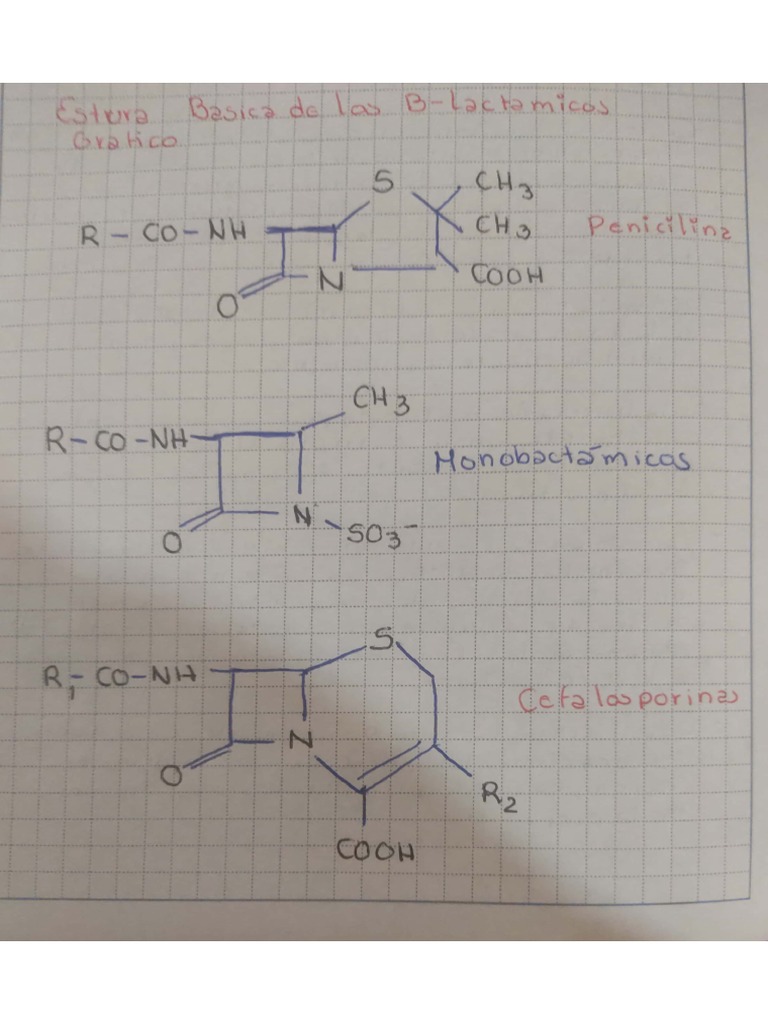 Estura Basica de las B-lactamicos
Gratico
S
CH3
R-CO-NH
CH3
Penicilina
N
COOH
O
CH3
R-CO-NH
Monobactámicos
N
O
SO3-
S
R1-CO-NH
Cefalosporinas
N
O
R2
COOH